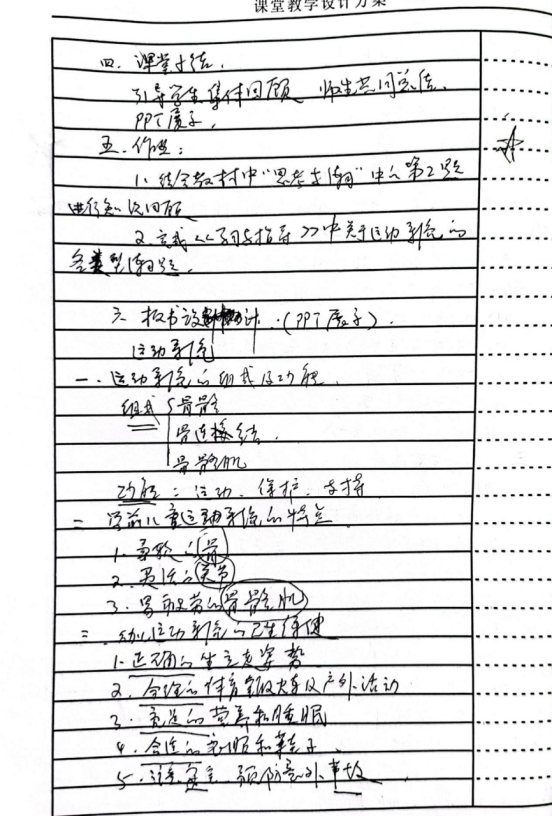 课堂教学设计方案
四、课堂小结.
引导学生集体回顾 师生共同总结.
PPT展示.
五. 作业:
1. 结合教材中“思考与” 中的第2题
进行知识回顾
2. 完成<<学习指导>>中关于运动系统的
各类型题.
六 板书设计 (PPT展示).
运动系统
一. 运动系统的组成及功能.
组成 骨骼
骨连结.
骨骼肌
功能: 运动. 保护. 支持
二 学前儿童运动系统的特点
1. 柔软的骨
2. 灵活的关节
3. 易疲劳的骨骼肌
三 幼儿运动系统的卫生保健
1. 正确的坐立走姿势
2. 合理的体育锻炼及户外活动
3. 充足的营养和睡眠
4. 合适的衣服和鞋子.
5. 注意安全. 预防意外事故